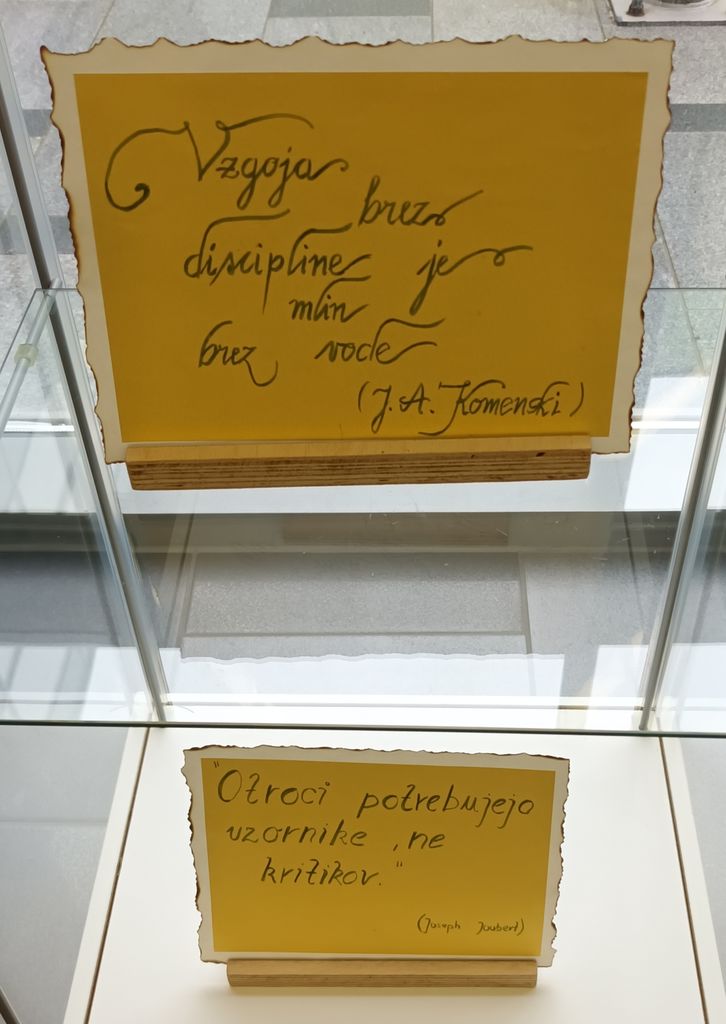 Vzgoja
brez
discipline je
mlin
brez vode
(J. A. Komenski)
"Otroci potrebujejo
vzornike, ne
kritikov."
(Joseph Joubert)